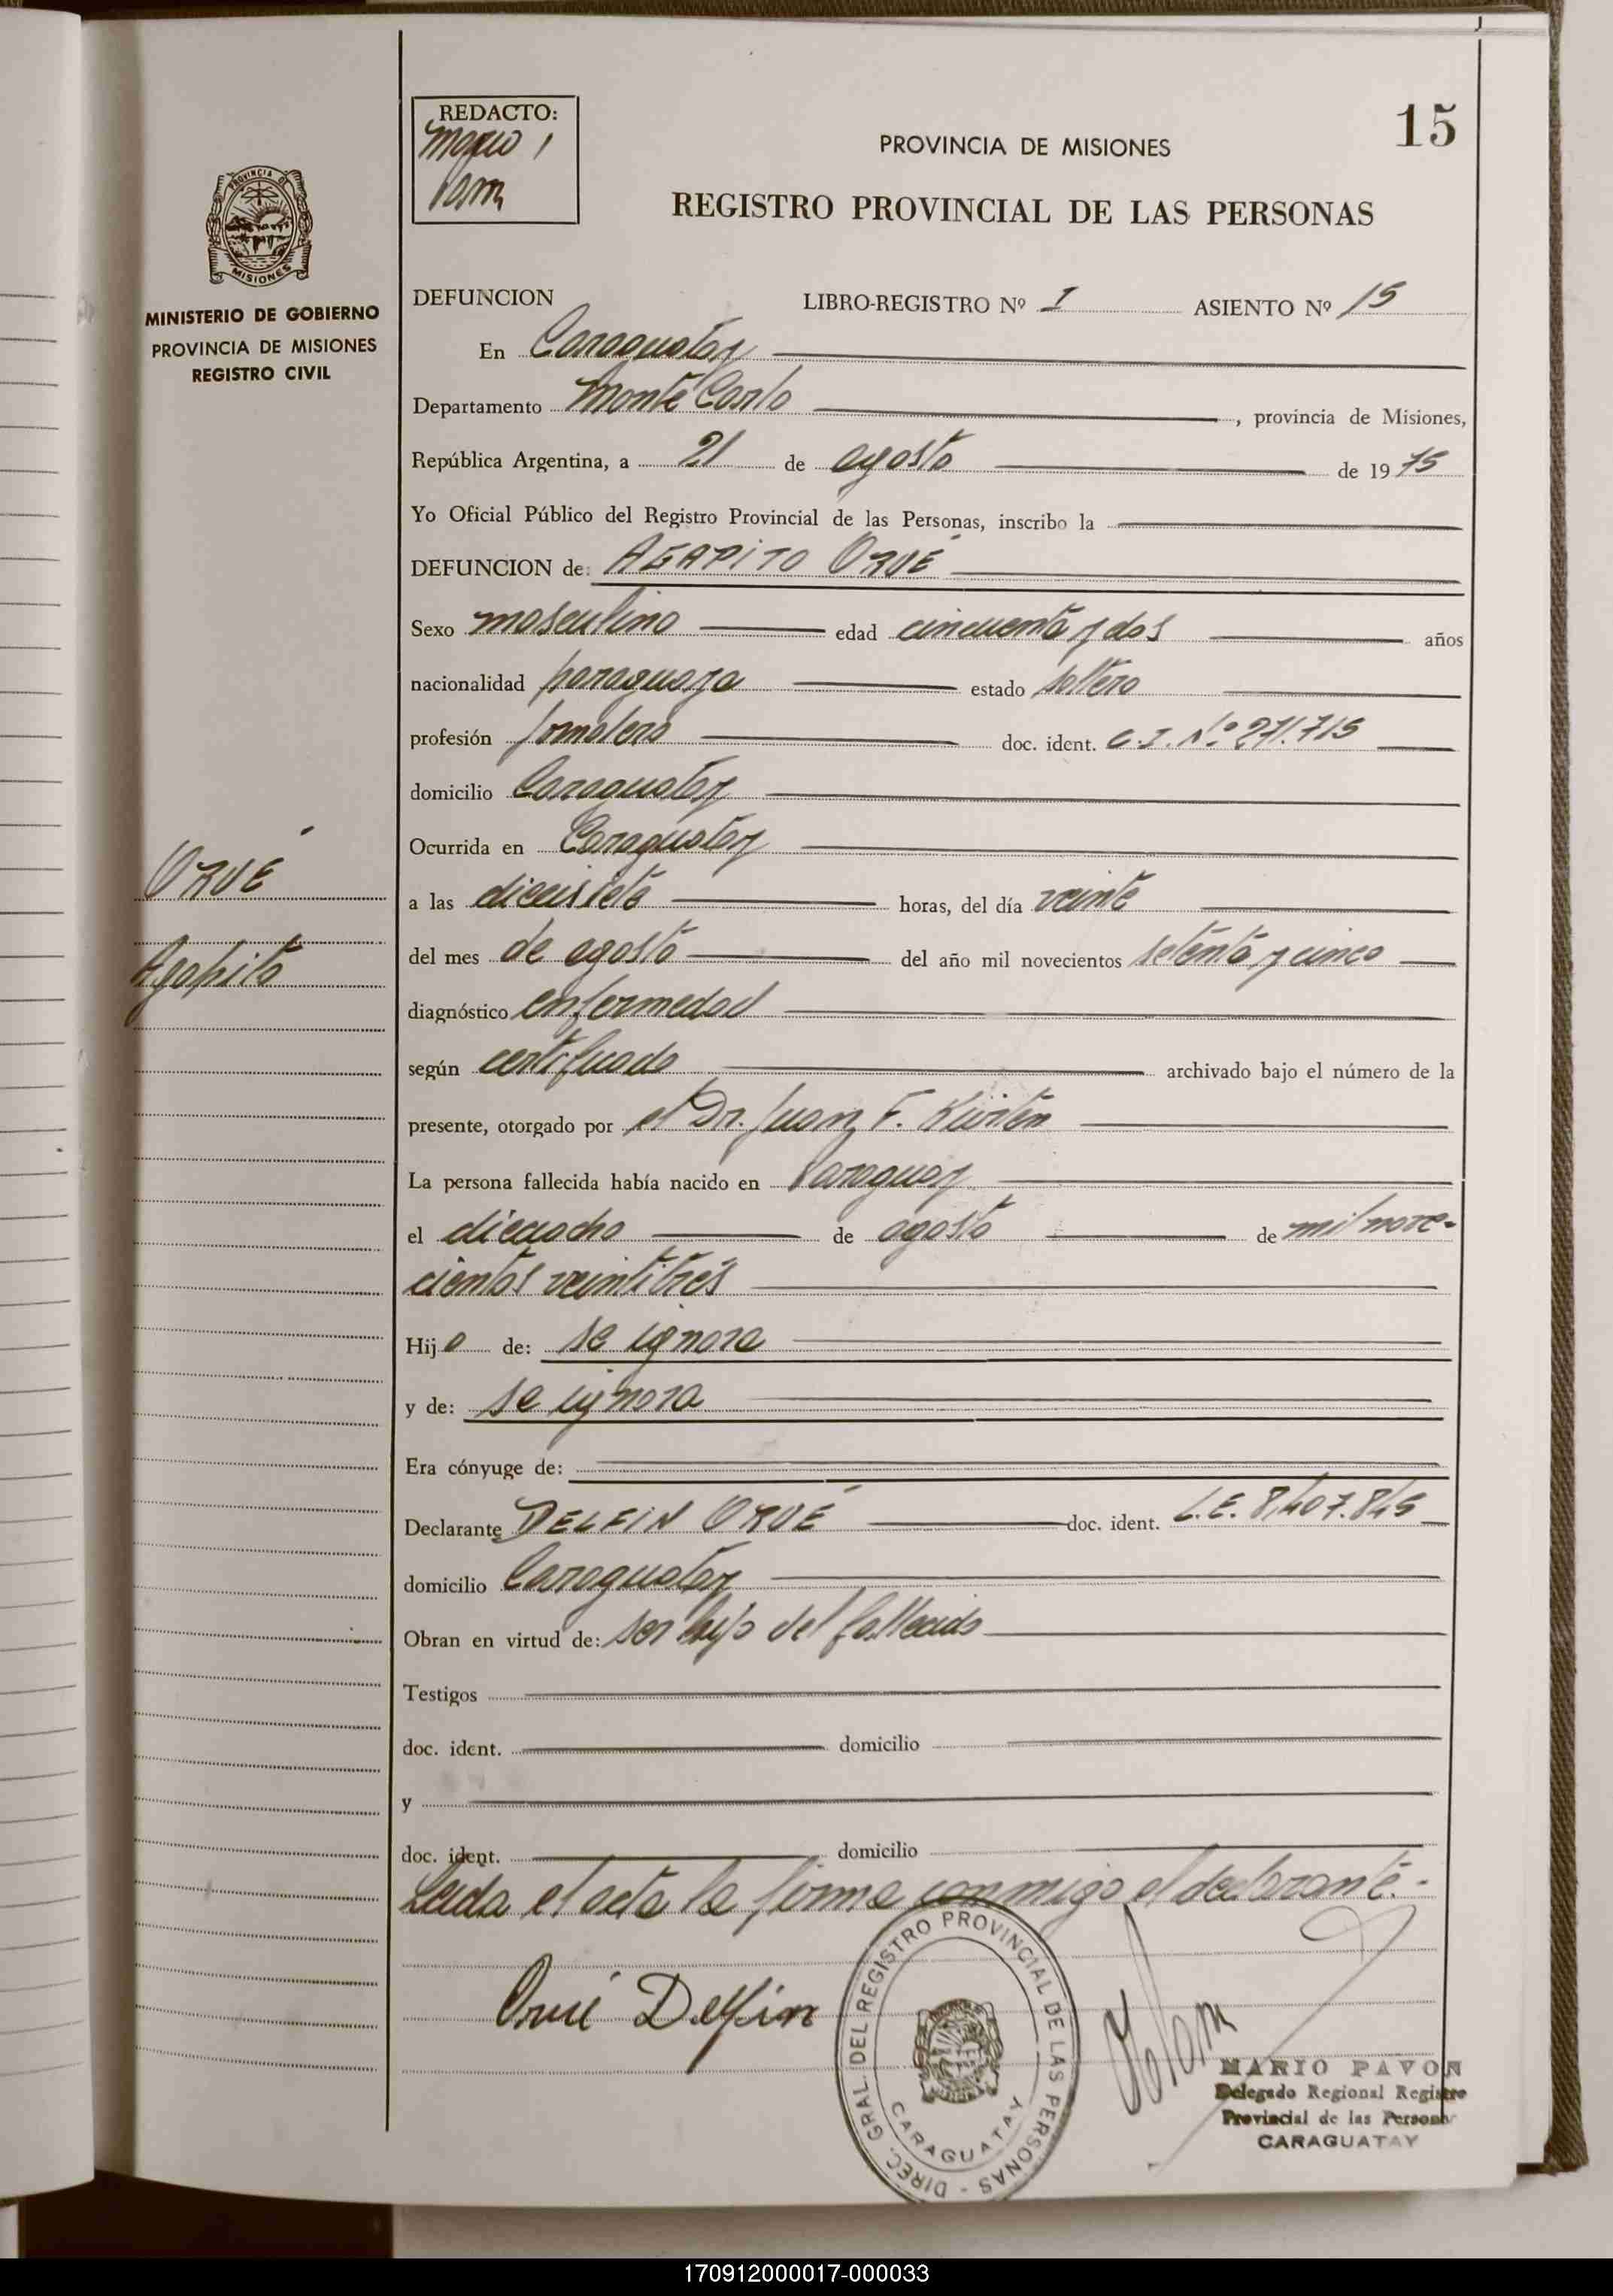 15
REDACTO:
PROVINCIA DE MISIONES
REGISTRO PROVINCIAL DE LAS PERSONAS
PROVINCIA DE
MISIONES
MINISTERIO DE GOBIERNO
PROVINCIA DE MISIONES
REGISTRO CIVIL
DEFUNCION LIBRO-REGISTRO Nº I ASIENTO Nº 15
En Caraguatay
Departamento Monte Carlo, provincia de Misiones,
República Argentina, a 21 de agosto de 1975
Yo Oficial Público del Registro Provincial de las Personas, inscribo la
DEFUNCION de: AGAPITO ORUÉ
Sexo masculino edad cincuenta y dos años
nacionalidad paraguaya estado soltero
profesión jornalero doc. ident. C.I. Nº 271.715
domicilio Caraguatay
Ocurrida en Caraguatay
ORUÉ
a las diecisiete horas, del día veinte
Agapito
del mes de agosto del año mil novecientos setenta y cinco
diagnóstico enfermedad
según certificado archivado bajo el número de la
presente, otorgado por el Dr. Juan F.
La persona fallecida había nacido en Paraguay
el dieciocho de agosto de mil nove-
cientos veintitrés
Hijo de: se ignora
y de: se ignora
Era cónyuge de:
Declarante DELFIN ORUÉ doc. ident. L.E. 8.407.845
domicilio Caraguatay
Obran en virtud de: ser hijo del fallecido
Testigos
doc. ident. domicilio
y
doc. ident. domicilio
Leida el acta la firma conmigo el declarante.-
Orué Delfin
DIREC. GRAL. DEL REGISTRO PROVINCIAL DE LAS PERSONAS -
CARAGUATAY
MARIO PAVON
Delegado Regional Registro
Provincial de las Personas
CARAGUATAY
170912000017-000033